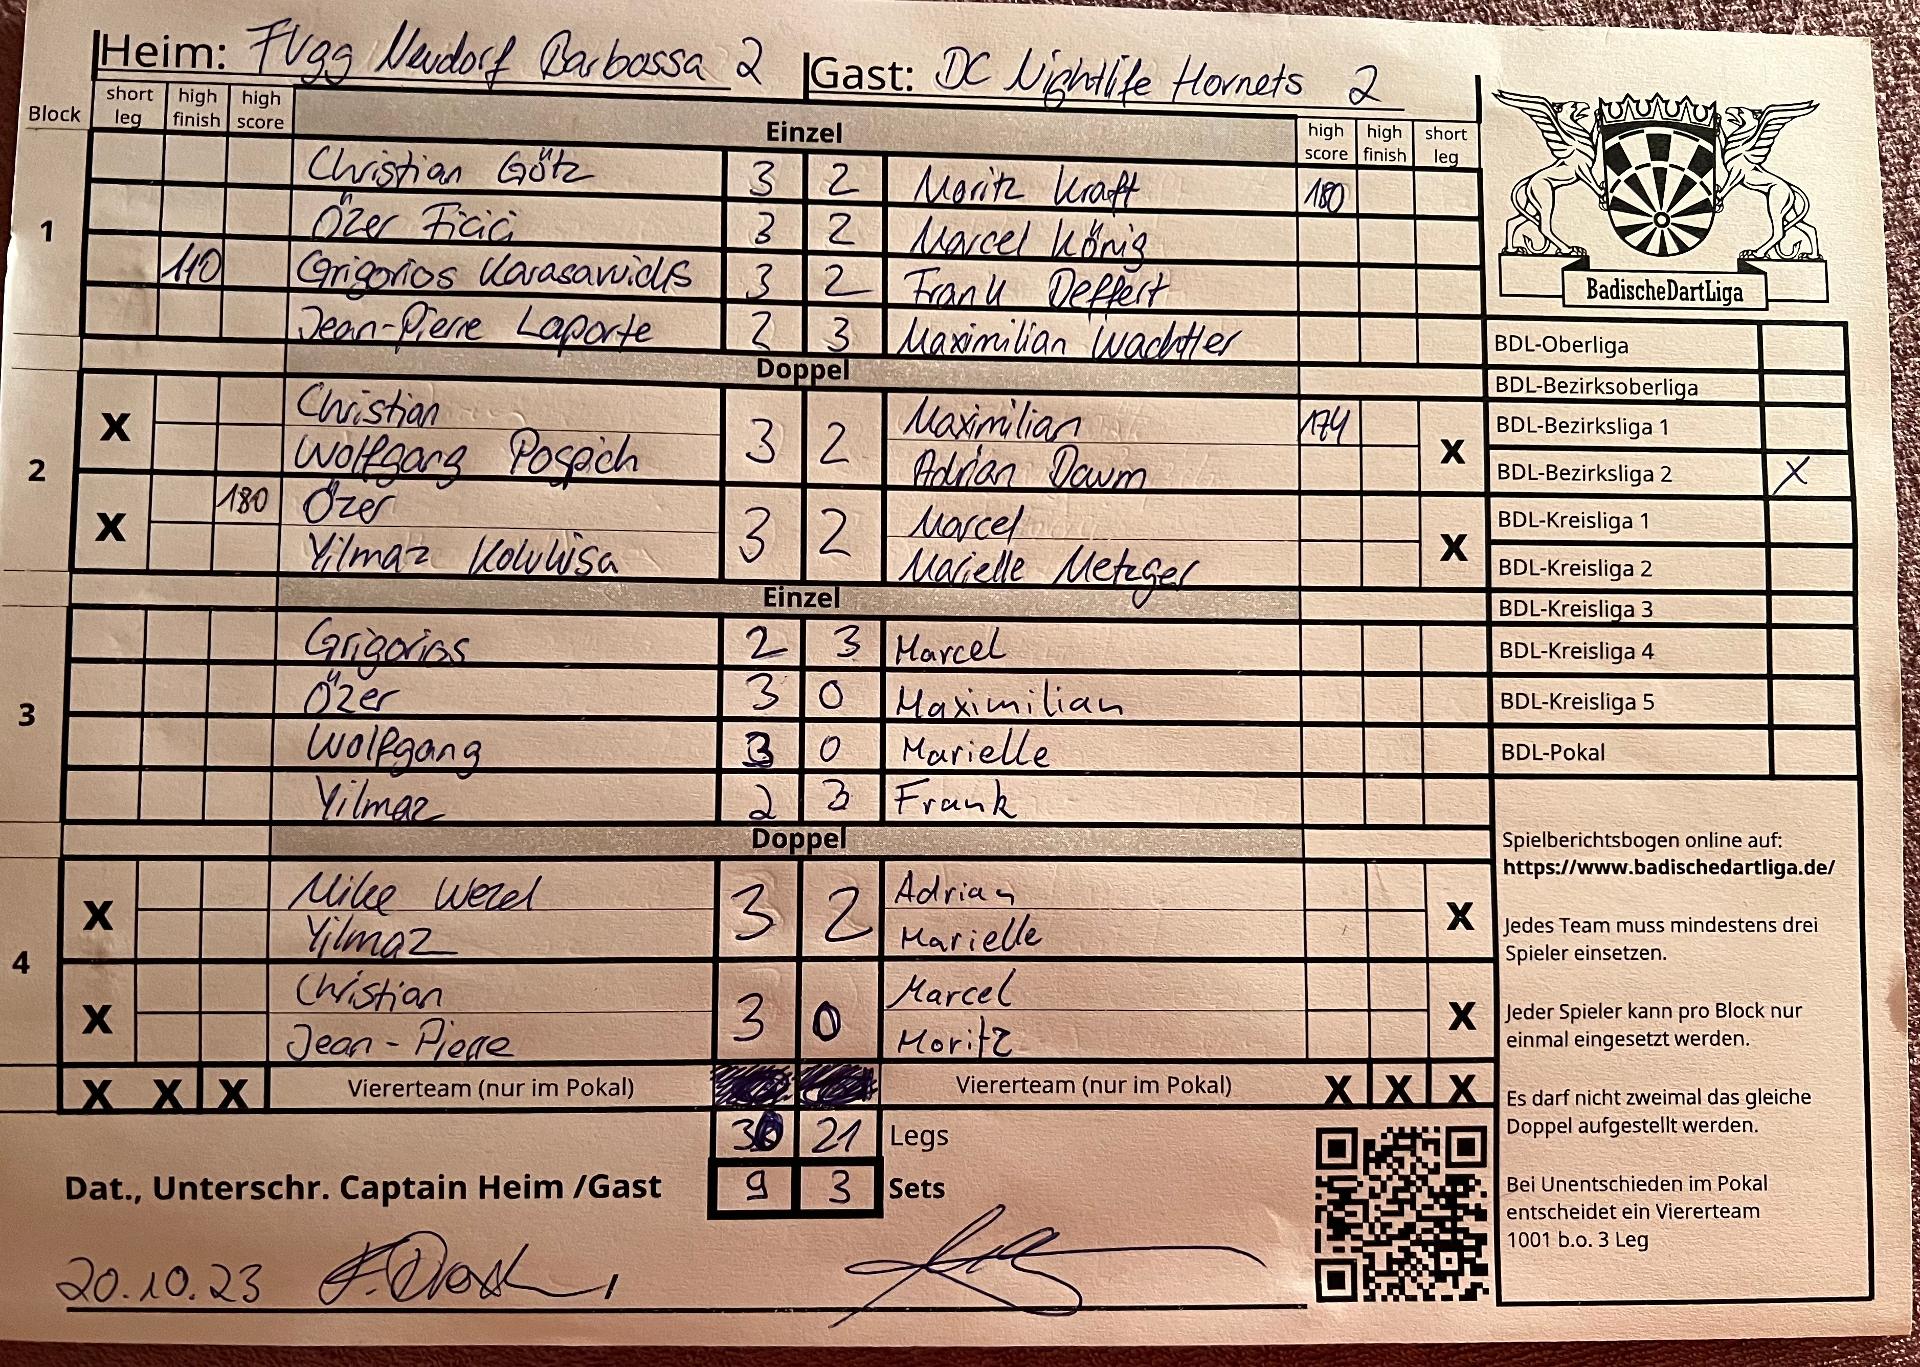 Heim: FVgg Neudorf Barbossa 2 Gast: DC Nightlife Hornets 2
Block short leg high finish high score Einzel high score high finish short leg
1
Christian Götz 3 2 Moritz Kraft 180
Özer Ficici 3 2 Marcel König
110 Grigorios Karasawidis 3 2 Frank Deffert
Jean-Pierre Laporte 2 3 Maximilian Wachtler
BadischeDartLiga
Doppel
2
X Christian 3 2 Maximilian 174 X
Wolfgang Pospich Adrian Daum
X 180 Özer 3 2 Marcel X
Yilmaz Kolukisa Marielle Metzger
Einzel
3
Grigorios 2 3 Marcel
Özer 3 0 Maximilian
Wolfgang 3 0 Marielle
Yilmaz 2 3 Frank
Doppel
4
X Mike Wezel 3 2 Adrian X
Yilmaz Marielle
X Christian 3 0 Marcel X
Jean-Pierre Moritz
X X X Viererteam (nur im Pokal) Viererteam (nur im Pokal) X X X
30 21 Legs
Dat., Unterschr. Captain Heim /Gast 9 3 Sets
20.10.23
BDL-Oberliga
BDL-Bezirksoberliga
BDL-Bezirksliga 1
BDL-Bezirksliga 2 X
BDL-Kreisliga 1
BDL-Kreisliga 2
BDL-Kreisliga 3
BDL-Kreisliga 4
BDL-Kreisliga 5
BDL-Pokal
Spielberichtsbogen online auf:
https://www.badischedartliga.de/
Jedes Team muss mindestens drei
Spieler einsetzen.
Jeder Spieler kann pro Block nur
einmal eingesetzt werden.
Es darf nicht zweimal das gleiche
Doppel aufgestellt werden.
Bei Unentschieden im Pokal
entscheidet ein Viererteam
1001 b.o. 3 Leg